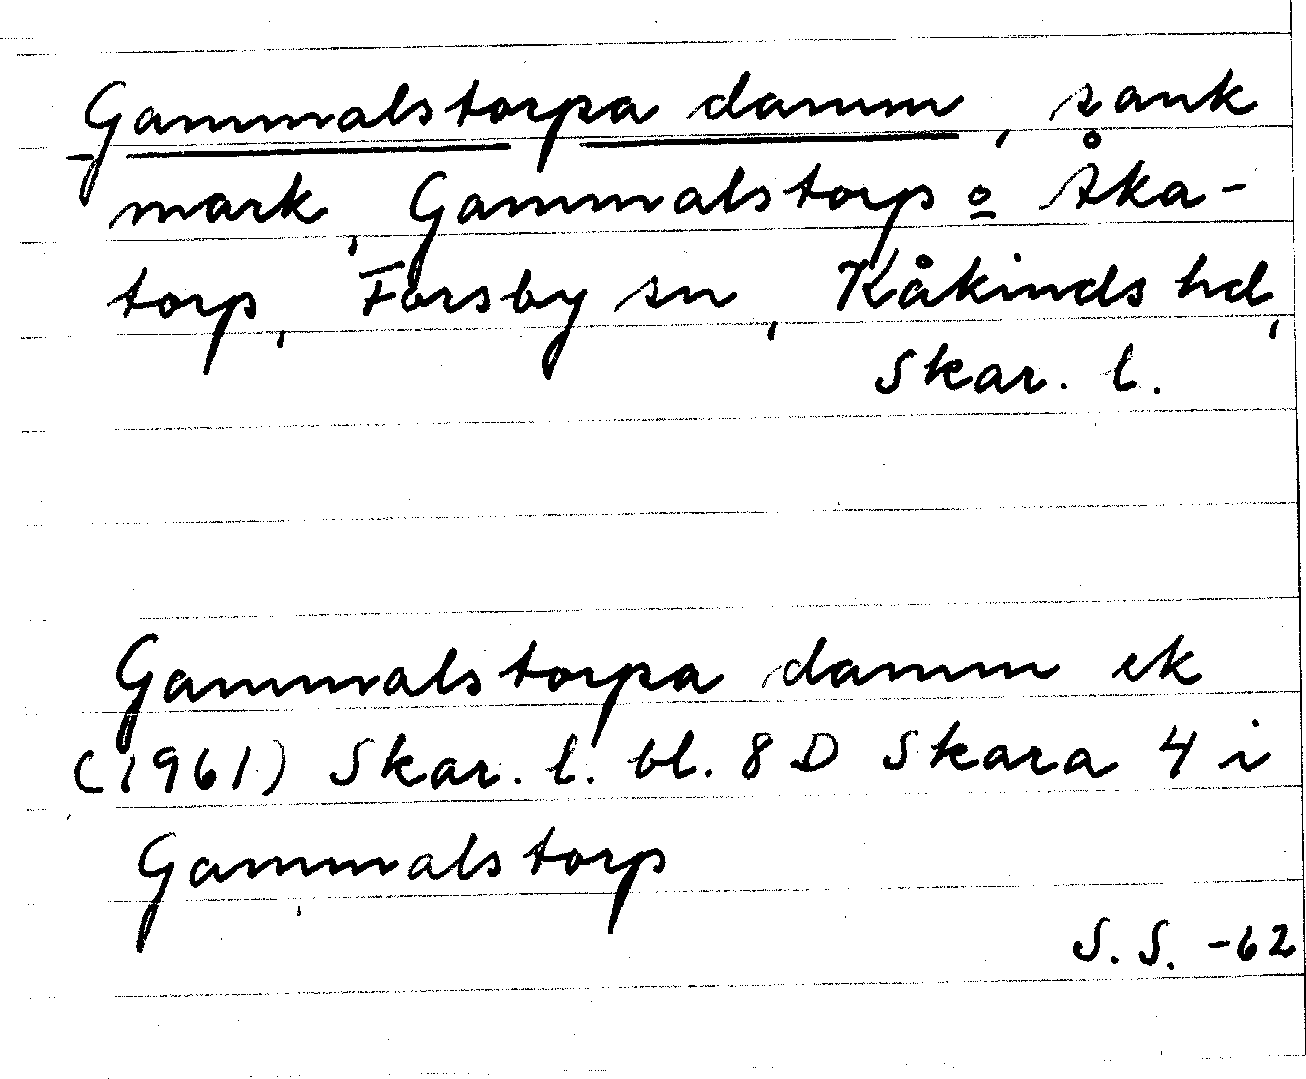 Gammalstorpa damm, sank
mark, Gammalstorp o Åka-
torp, Forsby sn, Kåkinds hd,
Skar. l.
Gammalstorpa damm ek
(1961) Skar. l. bl. 8 D Skara 4 i
Gammalstorp
S. S. -62